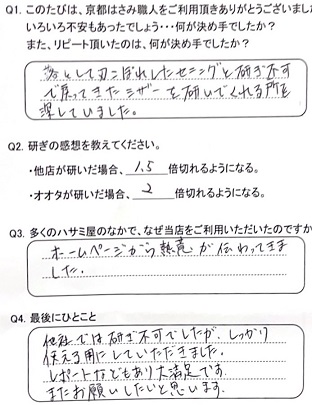 Q1. このたびは、京都はさみ職人をご利用頂きありがとうございまし
いろいろ不安もあったでしょう・・・何が決め手でしたか？
また、リピート頂いたのは、何が決め手でしたか？
落として刃こぼれしたセニングと研ぎ不可
で戻ってきたシザーを研いでくれる所を
探していました。
Q2. 研ぎの感想を教えてください。
・他店が研いだ場合、1.5倍切れるようになる。
・オオタが研いだ場合、2倍切れるようになる。
Q3. 多くのハサミ屋のなかで、なぜ当店をご利用いただいたのですか
ホームページから熱意が伝わってきま
した。
Q4. 最後にひとこと
他社では研ぎ不可でしたが、しっかり
使える用にしていただきました。
レポートなどもあり大満足です。
またお願いしたいと思います。